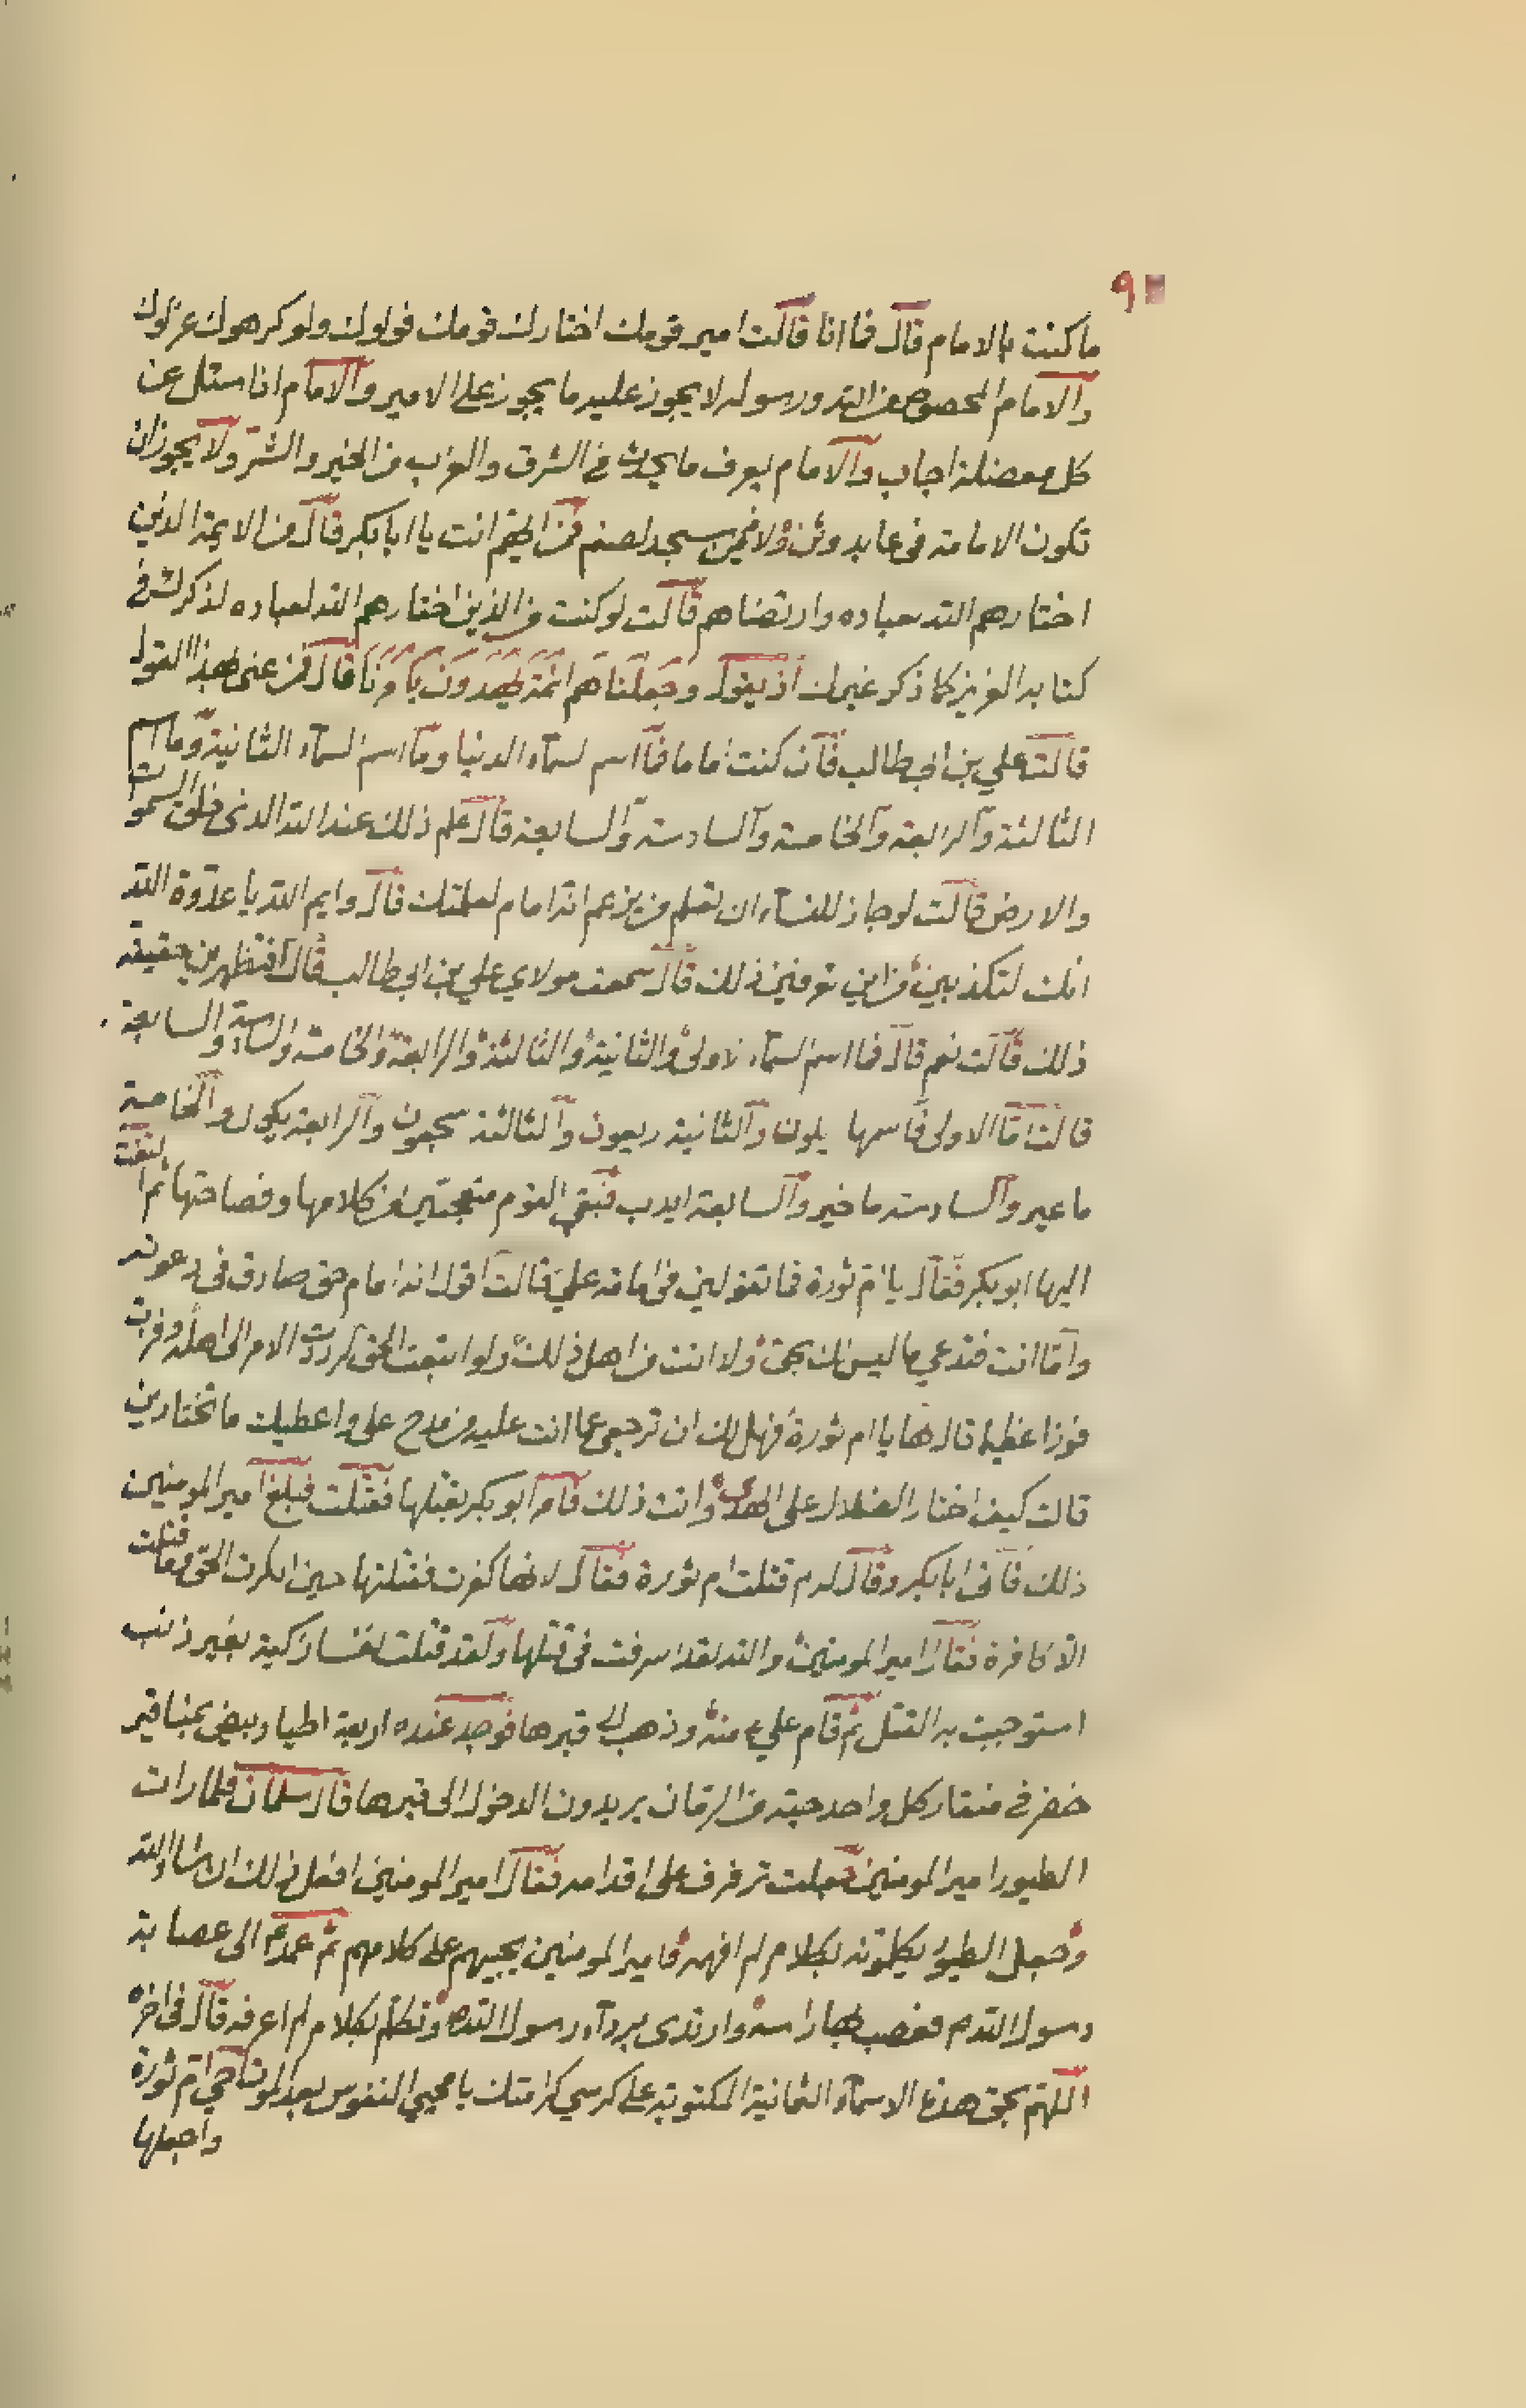 ٩
ما كنت بالامام قال فما انا قالت امير قومك اختارك قومك فولوك ولو كرهوك عزلوك
والامام المخصوص من الله ورسوله لا يجوز عليه ما يجوز على الامير والامام اذا سئل عن
كل معضلة اجاب والامام يعرف ما يحدث في الشرق والغرب من الخير والشر ولا يجوز ان
تكون الامامة في عابد وثن ولا فيمن سجد لصنم فمن ايهم انت يا ابا بكر قال من الايمة الذين
اختارهم الله لعباده وارتضاهم قالت لو كنت من الذين اختارهم الله لعباده لذكرك في
كتابه العزيز كما ذكر غيرك اذ يقول وجعلناهم ائمة يهدون بامرنا قال فمن عنى بهذا القول
قالت علي بن ابي طالب فان كنت اماما فما اسم لسماء الدنيا وما اسم السماء الثانية وما اسم
الثالثة والرابعة والخامسة والسادسة والسابعة قال علم ذلك عند الله الذي خلق السموات
والارض قالت لو جاز للنساء ان تعلم من يزعم انه امام لعلمتك قال وايم الله يا عدوة الله
انك لتكذبين من اين تعرفين ذلك قال سمعت مولاي علي بن ابي طالب قال افتظهرين حقيقة
ذلك قالت نعم قال فما اسم السماء الاولى والثانية والثالثة والرابعة والخامسة والسادسة والسابعة
قالت اما الاولى فاسمها يلون والثانية ربعون والثالثة سحبون والرابعة يكول والخامسة
ماعير والسادسة ماخير والسابعة ايدب فبقي القوم متعجبين من كلامها وفصاحتها ثم التفت
اليها ابو بكر فقال يا ام ثورة فما تقولين في امامة علي قالت اقول انه امام حق صادق في دعوته
واما انت فتدعي ما ليس لك بحق ولا انت من اهل ذلك ولو اتبعت الحق لرددت الامر الى اهله وفزت
فوزا عظيما قال لها يا ام ثورة فهل لك ان ترجعي عما انت عليه من مدح علي واعطيك ما تختارين
قالت كيف اختار الضلال على الهدى وانت ذلك فامر ابو بكر بقتلها فقتلت فبلغ امير المومنين
ذلك فاتى ابا بكر وقال له لم قتلت ام ثورة فقال لانها كفرت فقتلتها حين انكرت الحق وما قتلت
الا كافرة فقال امير المومنين والله لقد اسرفت في قتلها ولقد قتلت نفسا زكية بغير ذنب
استوجبت به القتل ثم قام علي منه وذهب الى قبرها فوجد عنده اربعة اطيار بيض بمناقير
خضر في منقار كل واحد حبة من الرمان يريدون الدخول الى قبرها قال سلمان فلما رات
الطيور امير المومنين جعلت ترفرف على اقدامه فقال امير المومنين افعل ذلك ان شاء الله
وجعل الطيور يكلمونه بكلام لم افهمه فامير المومنين يجيبهم على كلامهم ثم عمد الى عصابة
رسول الله فعصب بها راسه وارتدى برداء رسول الله وتكلم بكلام لم اعرفه قال في اخره
اللهم بحق هذه الاسماء الثمانية المكتوبة على كرسي كرامتك يا محيي النفوس بعد الموت احيي ام ثورة
واجعلها